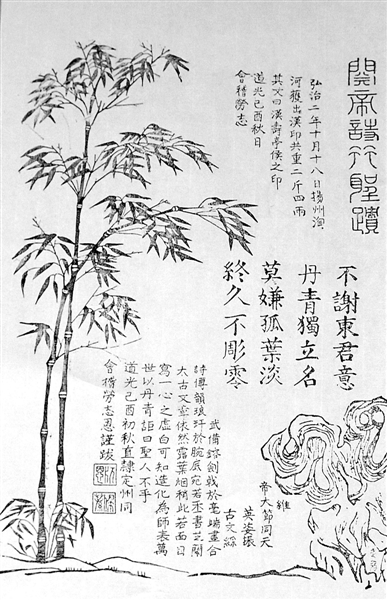 關帝詩竹聖蹟
弘治二年十月十八日揚州淘
河獲出漢印共重二斤四兩
其文曰漢壽亭侯之印
道光己酉秋日
會稽勞志
不謝東君意
丹青獨立名
莫嫌孤葉淡
終久不彫零
武備
於毫端畫合
詩傳
琅玕於腕底宛若丕書芝閣
太古文章依然露葉烟梢此若面日
寫一心之虛白可知造化為師表萬
世以丹青詎曰聖人不乎
道光己酉初秋直隸定州同
會稽勞志忍謹跋
維
帝大節同天
英姿振
古文綵